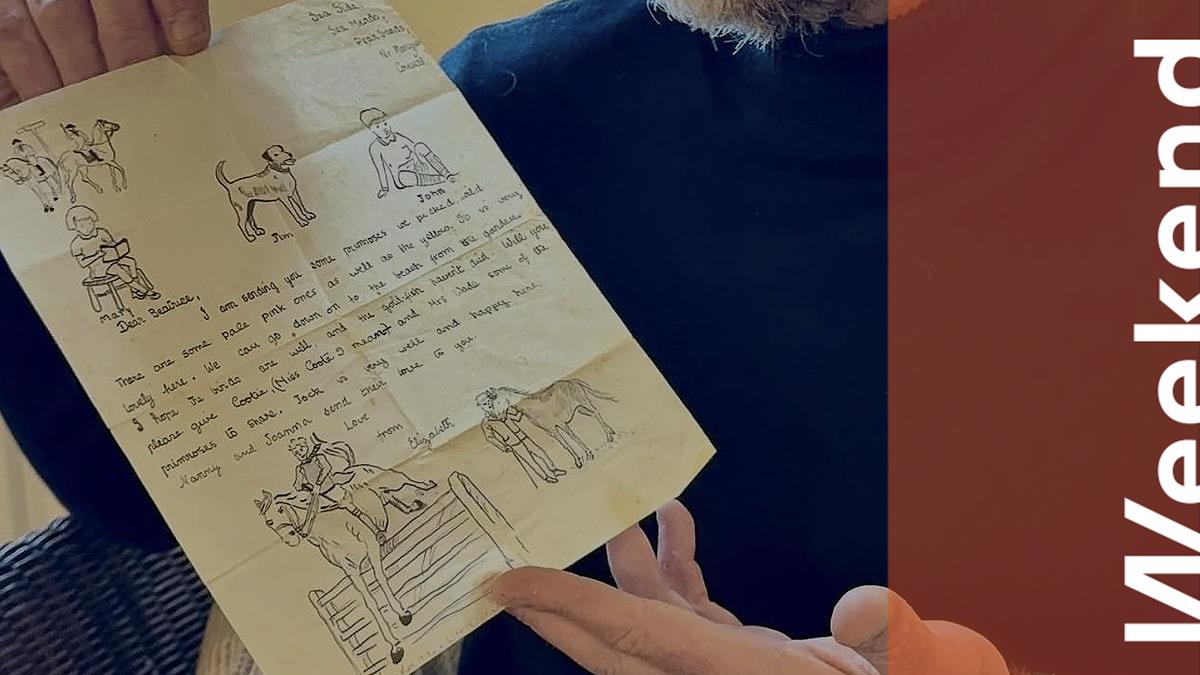 Sea Side,
Sea Mende,
Nr
Cornwall
John
Jim
Mary
Dear Beatrice,
I am sending you some primroses we picked, wild
There are some pale pink ones as well as the yellow. Jo is very
lovely here. We can go down on to the beach from the garden.
I hope Ju birds are well, and the gold-fish haven't died. Will you
please give Cootie, (Miss Coote I meant) and Mrs Wade some of the
primroses to share. Jock is very well and happy here.
Nanny and Joanna send their love to you
Love from Elizabeth
Weekend